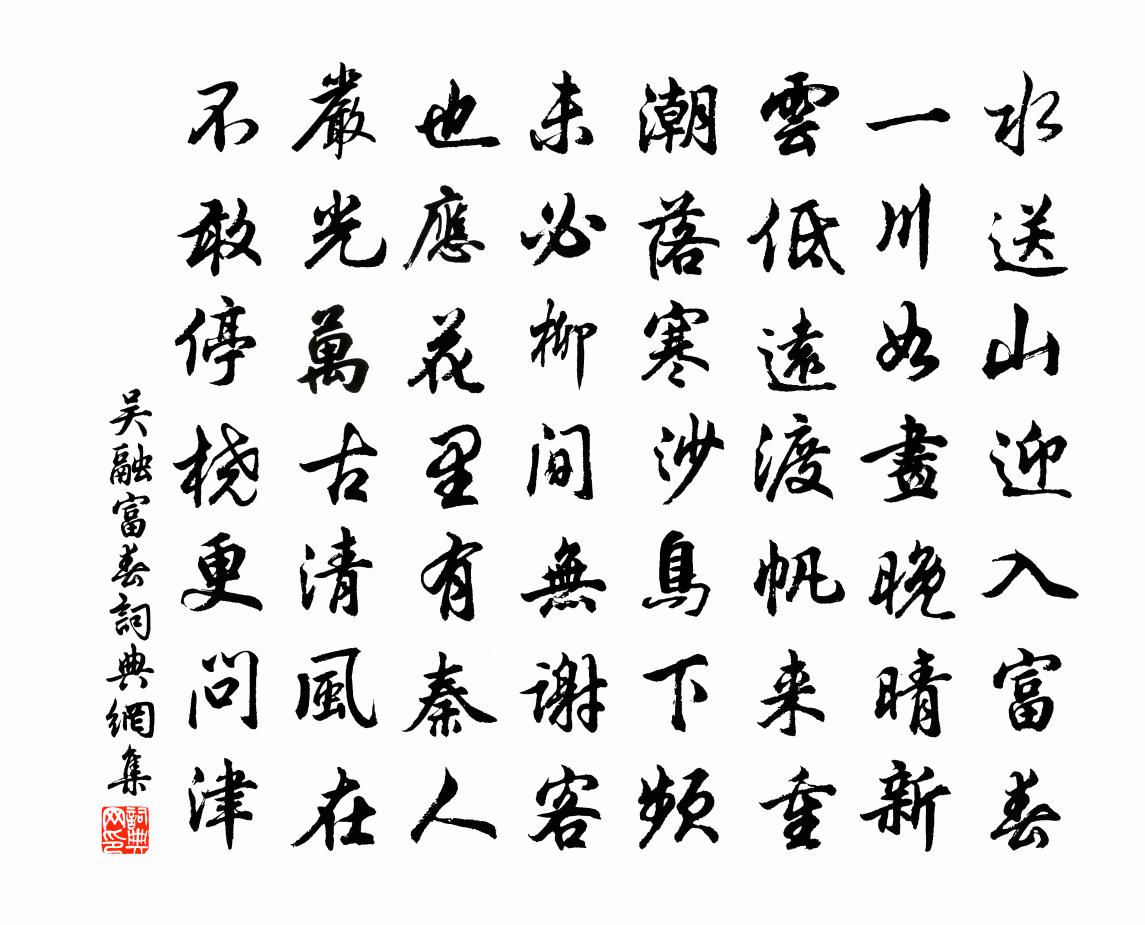 水送山迎入富春
一川如畫晚晴新
雲低遠渡帆来重
潮落寒沙鳥下頻
未必柳間無謝客
也應花里有秦人
嚴光萬古清風在
不敢停橈更問津
吳融富春詞典網集
詞典网印